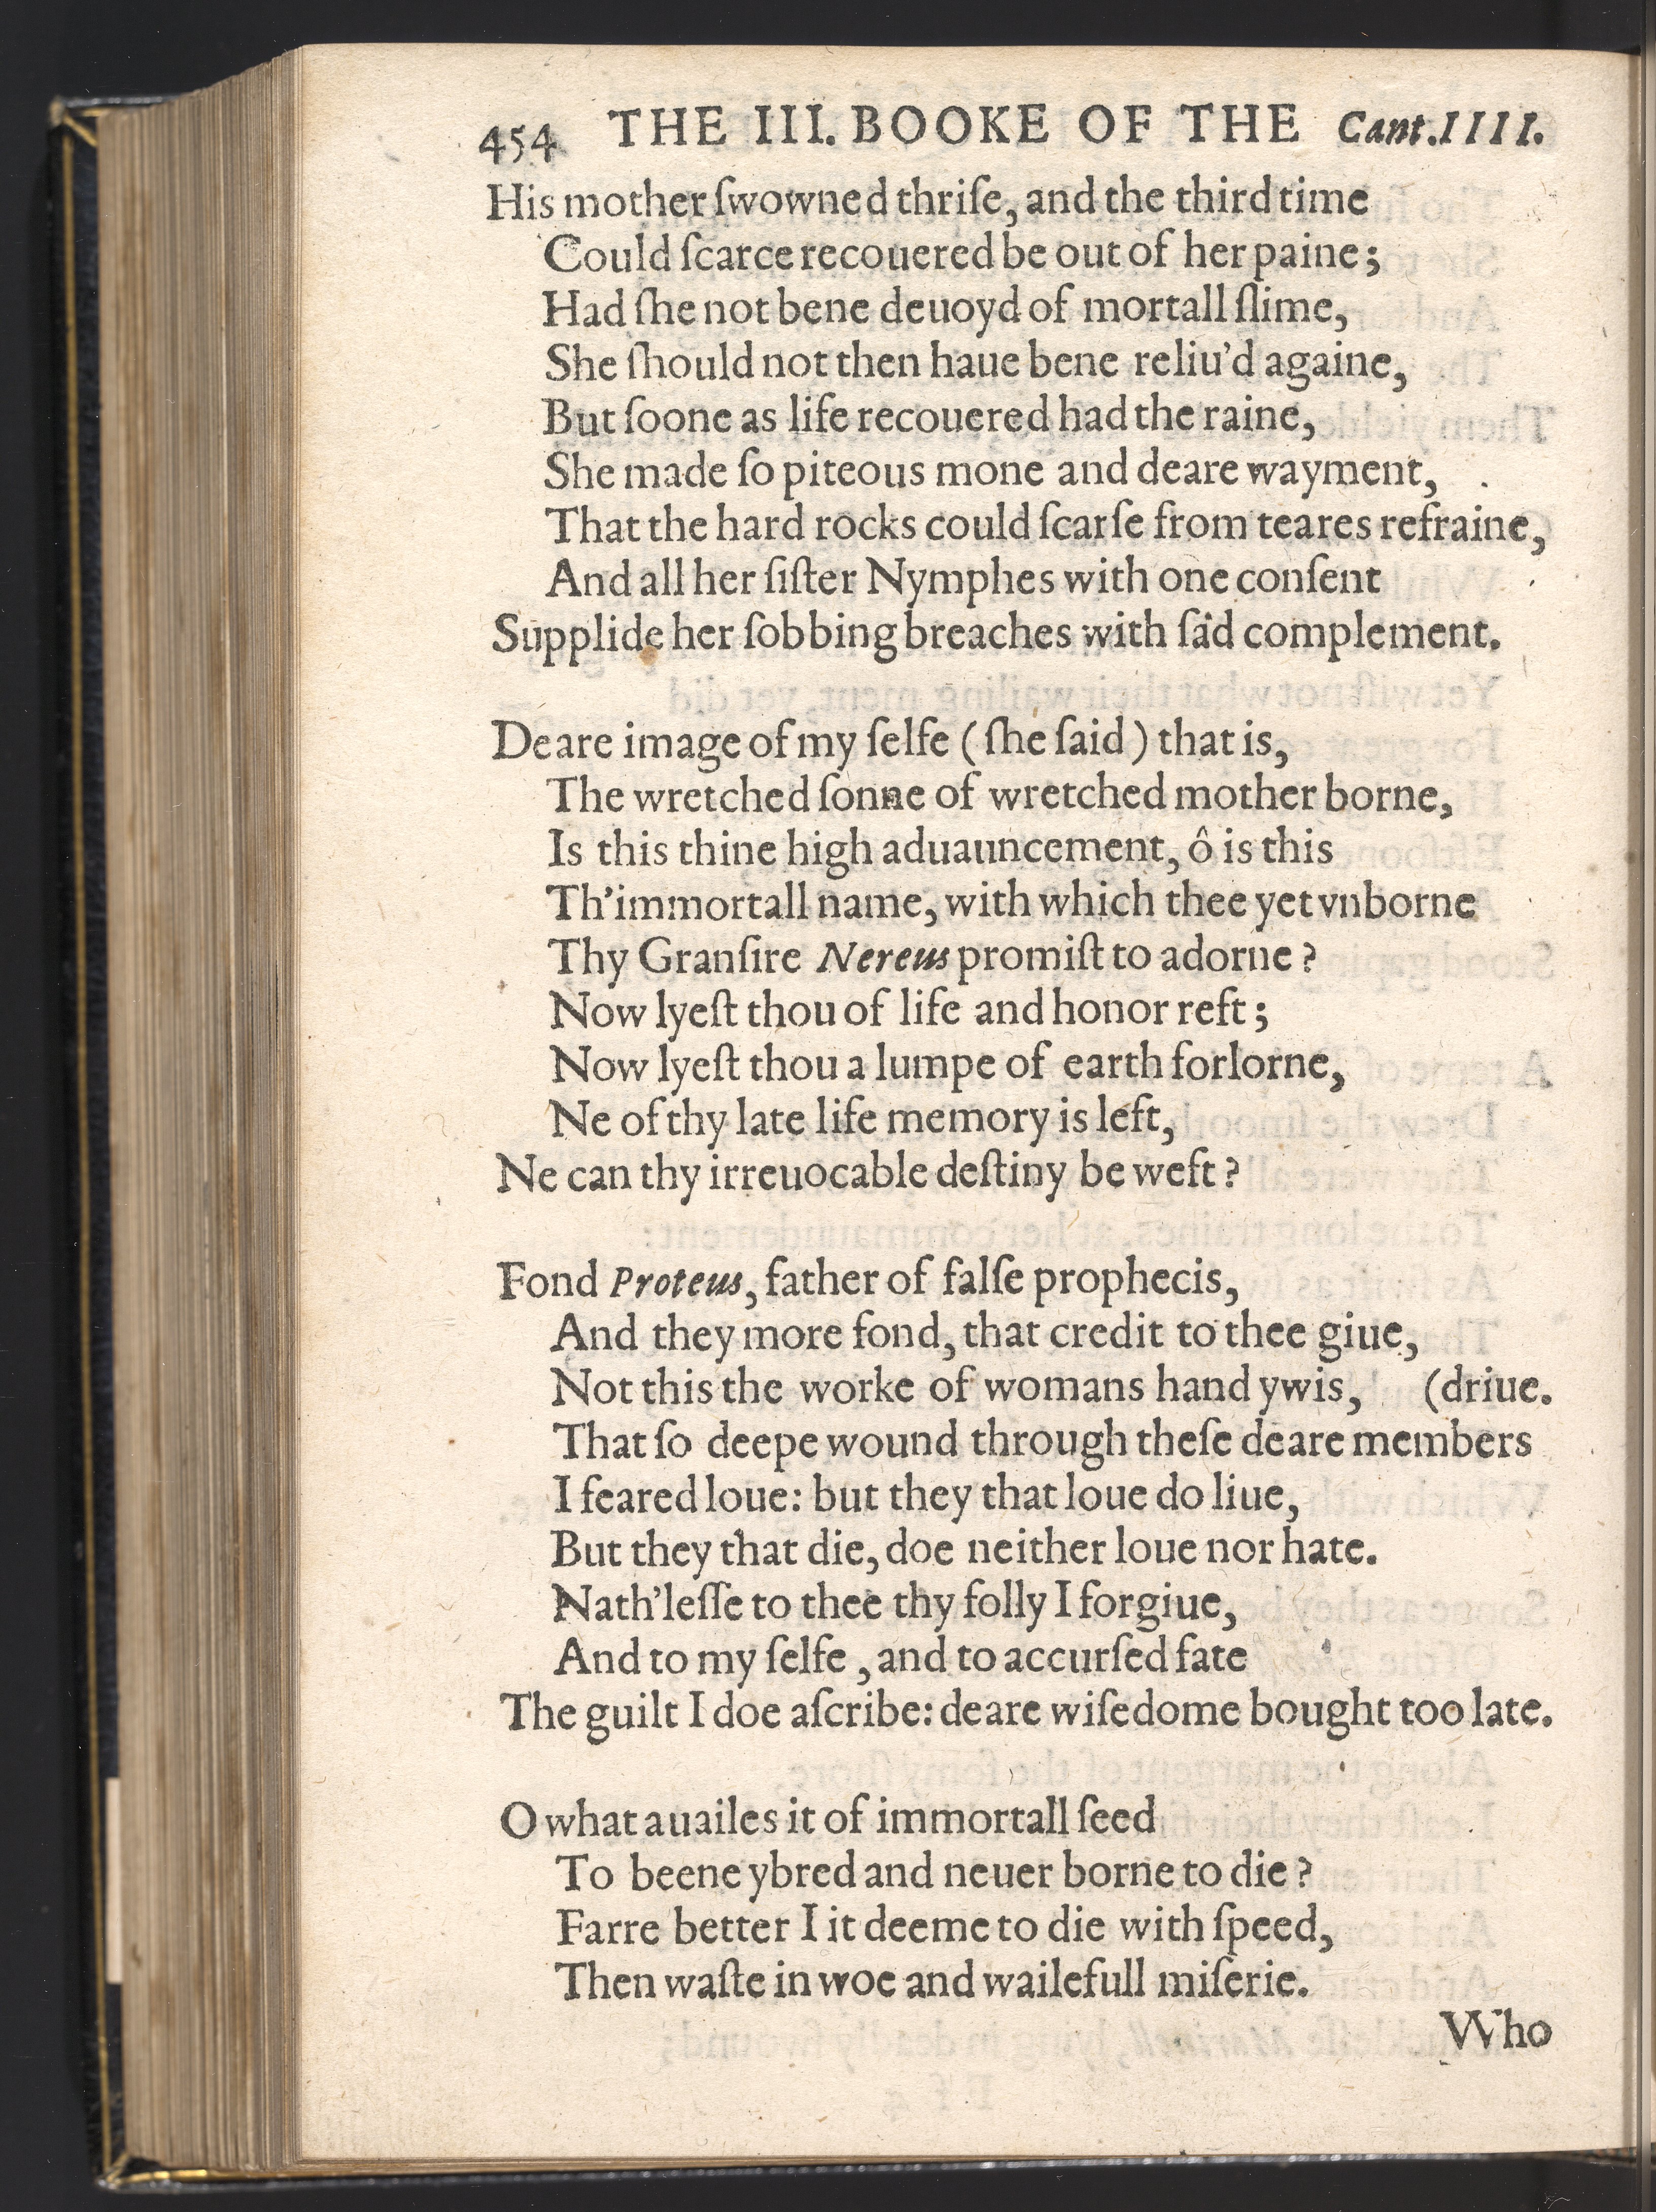 454 THE III. BOOKE OF THE Cant.IIII.
His mother ſwowned thriſe, and the third time
Could ſcarce recouered be out of her paine;
Had ſhe not bene deuoyd of mortall ſlime,
She ſhould not then haue bene reliu'd againe,
But ſoone as life recouered had the raine,
She made ſo piteous mone and deare wayment,
That the hard rocks could ſcarſe from teares refraine,
And all her ſiſter Nymphes with one conſent
Supplide her ſobbing breaches with ſad complement.
Deare image of my ſelfe (ſhe ſaid) that is,
The wretched ſonne of wretched mother borne,
Is this thine high aduauncement, ô is this
Th'immortall name, with which thee yet vnborne
Thy Granſire Nereus promiſt to adorne?
Now lyeſt thou of life and honor reft;
Now lyeſt thou a lumpe of earth forlorne,
Ne of thy late life memory is left,
Ne can thy irreuocable deſtiny be weft?
Fond Proteus, father of falſe prophecis,
And they more fond, that credit to thee giue,
Not this the worke of womans hand ywis, (driue.
That ſo deepe wound through theſe deare members
I feared loue: but they that loue do liue,
But they that die, doe neither loue nor hate.
Nath'leſſe to thee thy folly I forgiue,
And to my ſelfe, and to accurſed fate
The guilt I doe aſcribe: deare wiſedome bought too late.
O what auailes it of immortall ſeed
To beene ybred and neuer borne to die?
Farre better I it deeme to die with ſpeed,
Then waſte in woe and wailefull miſerie.
VVho